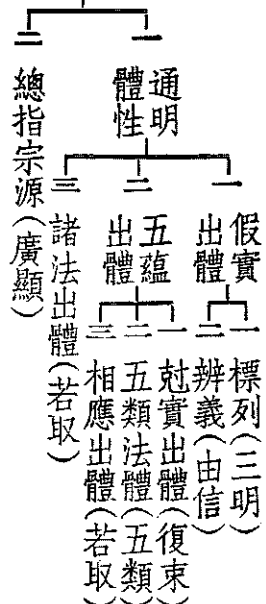 一 通明體性
一 假實出體
一 標列(三明)
二 辨義(由信)
二 五蘊出體
一 尅實出體(復束)
二 五類法體(五類)
三 相應出體(若取)
三 諸法出體(若取)
二 總指宗源(廣顯)